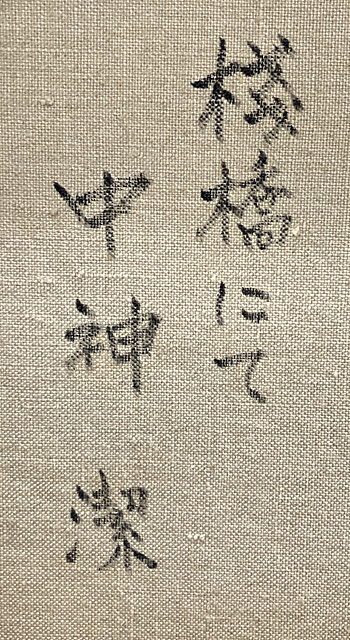 桟橋にて
中神 潔